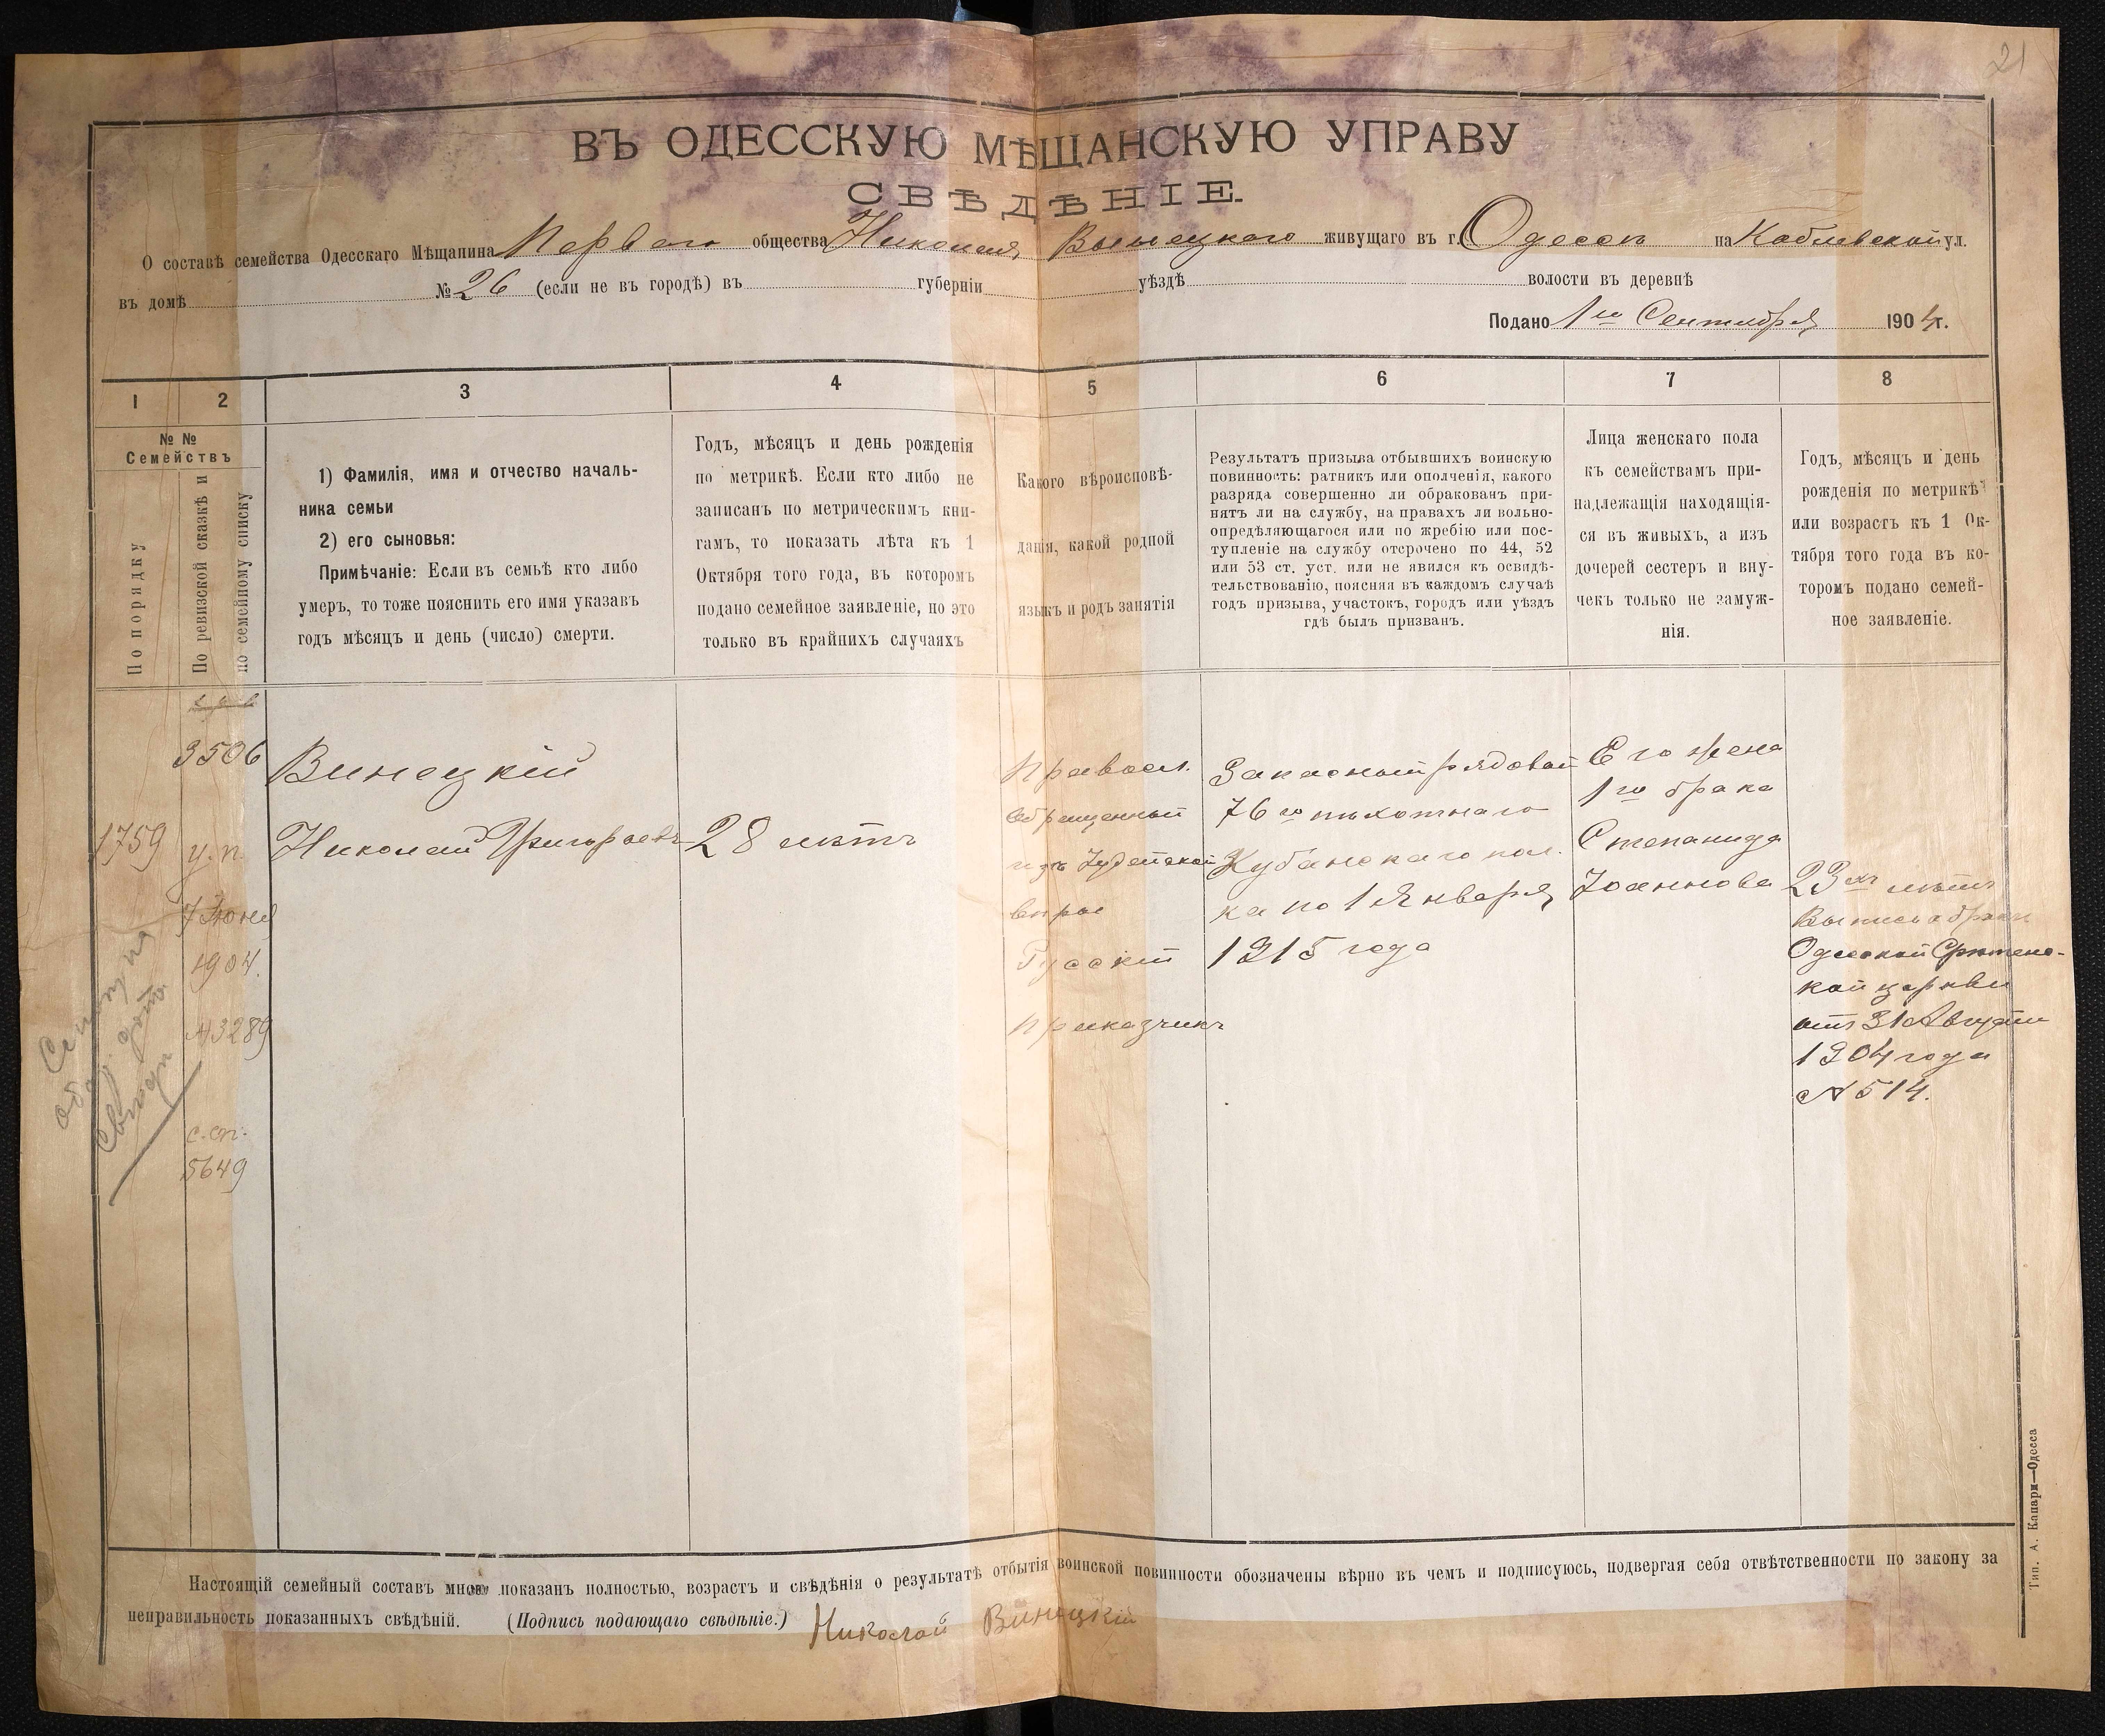 21
ВЪ ОДЕССКУЮ МѢЩАНСКУЮ УПРАВУ
СВѢДѢНІЕ.
О составѣ семейства Одесскаго Мѣщанина Перваго общества Николая Винецкаго живущаго въ г. Одессѣ на Коблевской ул.
въ домѣ № 26 (если не въ городѣ) въ губерніи уѣздѣ волости въ деревнѣ
Подано 1го Сентября 1904 г.
1
2
3
4
5
6
7
8
№ №
Семействъ
По порядку
По ревизской сказкѣ и
по семейному списку
1) Фамилія, имя и отчество началь-
ника семьи
2) его сыновья:
Примѣчаніе: Если въ семьѣ кто либо
умеръ, то тоже пояснить его имя указавъ
годъ мѣсяцъ и день (число) смерти.
Годъ, мѣсяцъ и день рожденія
по метрикѣ. Если кто либо не
записанъ по метрическимъ кни-
гамъ, то показать лѣта къ 1
Октября того года, въ которомъ
подано семейное заявленіе, но это
только въ крайнихъ случаяхъ
Какого вѣроисповѣ-
данія, какой родной
языкъ и родъ занятія
Результатъ призыва отбывшихъ воинскую
повинность: ратникъ или ополченія, какого
разряда совершенно ли обракованъ при-
нятъ ли на службу, на правахъ ли вольно-
опредѣляющагося или по жребію или пос-
тупленіе на службу отсрочено по 44, 52
или 53 ст. уст. или не явился къ освидѣ-
тельствованію, поясняя въ каждомъ случаѣ
годъ призыва, участокъ, городъ или уѣздъ
гдѣ былъ призванъ.
Лица женскаго пола
къ семействамъ при-
надлежащія находящія-
ся въ живыхъ, а изъ
дочерей сестеръ и вну-
чекъ только не замуж-
нія.
Годъ, мѣсяцъ и день
рожденія по метрикѣ
или возрастъ къ 1 Ок-
тября того года въ ко-
торомъ подано семей-
ное заявленіе.
1759
3506
у. п.
7 Іюня
1904.
№3289
с.сп.
5649
Винецкій
Николай Григорьевъ
28 лѣтъ
Правосл.
обращенный
изъ Іудейской
вѣры
Русскій
приказчикъ
Запасный рядовой
76го пѣхотнаго
Кубанскаго пол.
ка по 1 Января
1915 года
Его жена
1го брака
Степанида
Іоаннова
23хъ лѣтъ
Выпись о бракѣ
Одесской Срѣтенс-
кой церкви
отъ 31 Августа
1904 года
№ 514.
Настоящій семейный составъ мною показанъ полностью, возрастъ и свѣдѣнія о результатѣ отбытія воинской повинности обозначены вѣрно въ чемъ и подписуюсь, подвергая себя отвѣтственности по закону за
неправильность показанныхъ свѣдѣній. (Подпись подающаго свѣдѣніе.) Николай Винецкій
Тип. А. Капари—Одесса